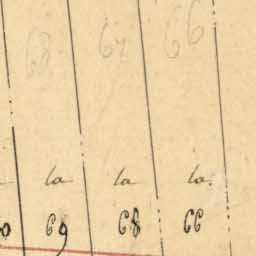 68 67 66
la la la.
69 68 66